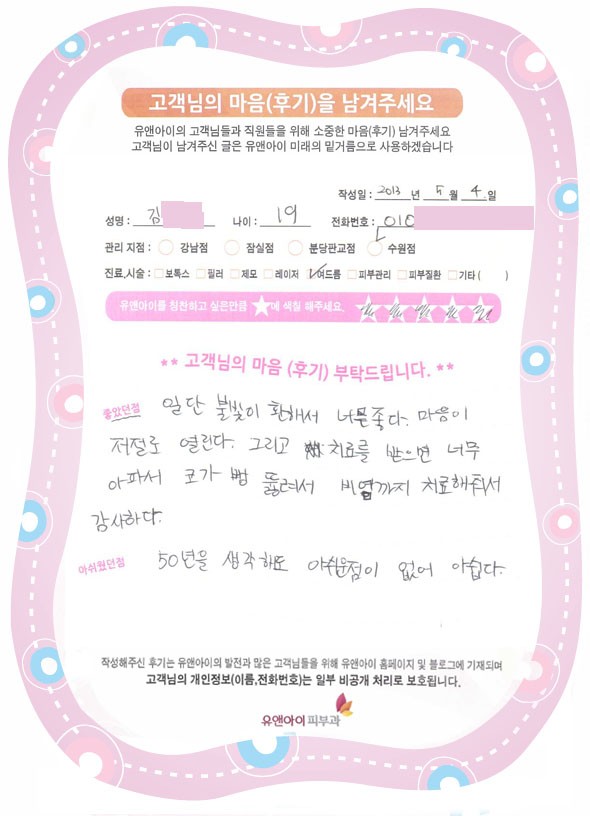 고객님의 마음(후기)을 남겨주세요
유앤아이의 고객님들과 직원들을 위해 소중한 마음(후기) 남겨주세요
고객님이 남겨주신 글은 유앤아이 미래의 밑거름으로 사용하겠습니다
작성일 : 2013 년 5 월 4 일
성명 : 김 나이 : 19 전화번호 : 010
관리 지점 : 강남점 잠실점 분당판교점 수원점
진료,시술 : 보톡스 필러 제모 레이저 여드름 피부관리 피부질환 기타 ( )
유앤아이를 칭찬하고 싶은만큼 ★에 색칠 해주세요.
** 고객님의 마음 (후기) 부탁드립니다. **
좋았던점 일단 불빛이 환해서 너무좋다. 마음이
저절로 열린다. 그리고 치료를 받으면 너무
아파서 코가 뻥 뚫려서 비염까지 치료해줘서
감사하다.
아쉬웠던점 50년을 생각해도 아쉬운점이 없어 아쉽다.
작성해주신 후기는 유앤아이의 발전과 많은 고객님들을 위해 유앤아이 홈페이지 및 블로그에 기재되며
고객님의 개인정보(이름,전화번호)는 일부 비공개 처리로 보호됩니다.
유앤아이피부과